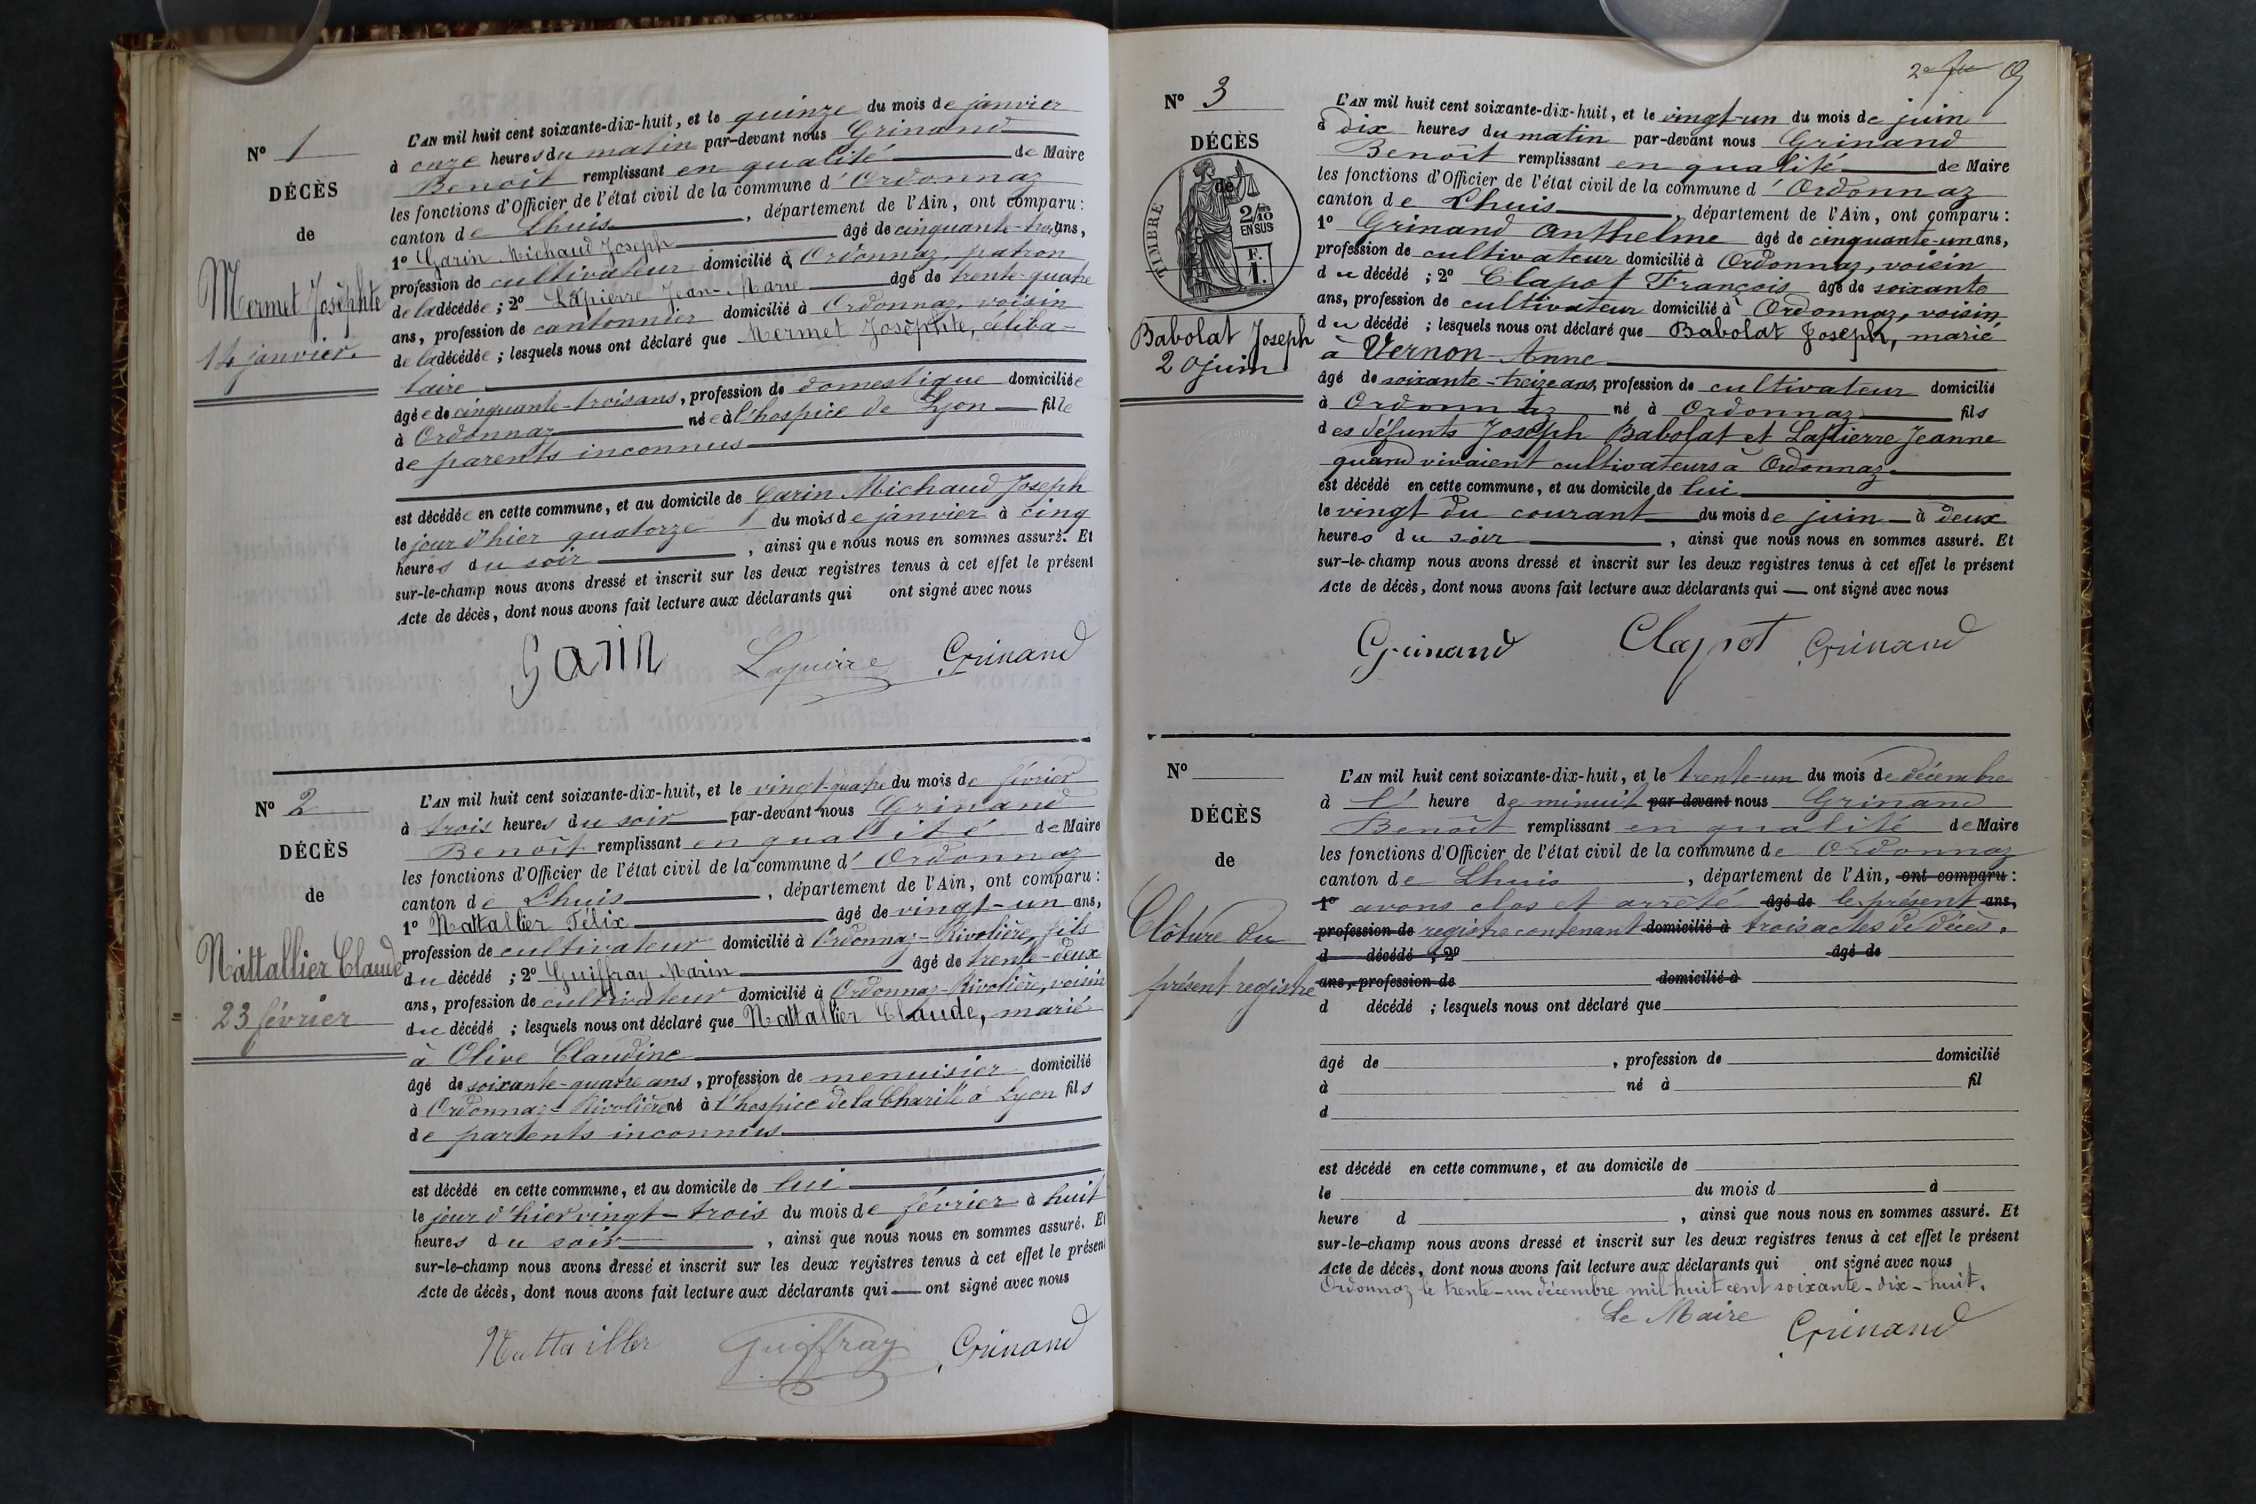 Nº 1
DÉCÈS
de
Mermet Josephte
14 janvier.
L'AN mil huit cent soixante-dix-huit, et le quinze du mois de janvier
à onze heures du matin par-devant nous Grinand
Benoît remplissant en qualité de Maire
les fonctions d'Officier de l'état civil de la commune d'Ordonnaz
canton de Lhuis, département de l'Ain, ont comparu :
1º Garin Michaud Joseph âgé de cinquante-trois ans,
profession de cultivateur domicilié à Ordonnaz, patron
de la décédée ; 2º Lapierre Jean-Marie âgé de trente-quatre
ans, profession de cantonnier domicilié à Ordonnaz, voisin
de la décédée ; lesquels nous ont déclaré que Mermet Josephte, céliba-
taire
âgée de cinquante-trois ans, profession de domestique domiciliée
à Ordonnaz née à l'hospice de Lyon fille
de parents inconnus
est décédée en cette commune, et au domicile de Garin Michaud Joseph
le jour d'hier quatorze du mois de janvier à cinq
heures du soir, ainsi que nous nous en sommes assuré. Et
sur-le-champ nous avons dressé et inscrit sur les deux registres tenus à cet effet le présent
Acte de décès, dont nous avons fait lecture aux déclarants qui ont signé avec nous
Garin Lapierre Grinand
Nº 2
DÉCÈS
de
Nattallier Claude
23 février
L'AN mil huit cent soixante-dix-huit, et le vingt-quatre du mois de février
à trois heures du soir par-devant nous Grinand
Benoît remplissant en qualité de Maire
les fonctions d'Officier de l'état civil de la commune d'Ordonnaz
canton de Lhuis, département de l'Ain, ont comparu :
1º Nattallier Félix âgé de vingt-un ans,
profession de cultivateur domicilié à Ordonnaz-Rivolière, fils
du décédé ; 2º Guiffray Marin âgé de trente-deux
ans, profession de cultivateur domicilié à Ordonnaz-Rivolière, voisin
du décédé ; lesquels nous ont déclaré que Nattallier Claude, marié
à Olive Claudine
âgé de soixante-quatre ans, profession de menuisier domicilié
à Ordonnaz-Rivolière né à l'hospice de la Charité à Lyon fils
de partents inconnus
est décédé en cette commune, et au domicile de lui
le jour d'hier vingt-trois du mois de février à huit
heures du soir, ainsi que nous nous en sommes assuré. Et
sur-le-champ nous avons dressé et inscrit sur les deux registres tenus à cet effet le présent
Acte de décès, dont nous avons fait lecture aux déclarants qui ont signé avec nous
Nattailler Guiffray Grinand
Nº 3
DÉCÈS
de
TIMBRE
2/10 EN SUS
F. 1.
Babolat Joseph
20 juin
L'AN mil huit cent soixante-dix-huit, et le vingt-un du mois de juin
à dix heures du matin par-devant nous Grinand
Benoît remplissant en qualité de Maire
les fonctions d'Officier de l'état civil de la commune d'Ordonnaz
canton de Lhuis, département de l'Ain, ont comparu :
1º Grinand Anthelme âgé de cinquante-un ans,
profession de cultivateur domicilié à Ordonnaz, voisin
du décédé ; 2º Clapot François âgé de soixante
ans, profession de cultivateur domicilié à Ordonnaz, voisin
du décédé ; lesquels nous ont déclaré que Babolat Joseph, marié
à Vernon Anne
âgé de soixante-treize ans, profession de cultivateur domicilié
à Ordonnaz né à Ordonnaz fils
des défunts Joseph Babolat et Lapierre Jeanne
quand vivaient cultivateurs à Ordonnaz.
est décédé en cette commune, et au domicile de lui
le vingt du courant du mois de juin à deux
heures du soir, ainsi que nous nous en sommes assuré. Et
sur-le-champ nous avons dressé et inscrit sur les deux registres tenus à cet effet le présent
Acte de décès, dont nous avons fait lecture aux déclarants qui ont signé avec nous
Grinand Clapot Grinand
Nº
DÉCÈS
de
Clôture du
présent registre
L'AN mil huit cent soixante-dix-huit, et le trente-un du mois de décembre
à l' heure de minuit par-devant nous Grinand
Benoît remplissant en qualité de Maire
les fonctions d'Officier de l'état civil de la commune de Ordonnaz
canton de Lhuis, département de l'Ain, ont comparu :
1º avons clos et arrêté âgé de le présent ans,
profession de registre contenant domicilié à trois actes de décès.
d décédé ; 2º âgé de
ans, profession de domicilié à
d décédé ; lesquels nous ont déclaré que
âgé de , profession de domicilié
à né à fil
d
est décédé en cette commune, et au domicile de
le du mois d à
heure d , ainsi que nous nous en sommes assuré. Et
sur-le-champ nous avons dressé et inscrit sur les deux registres tenus à cet effet le présent
Acte de décès, dont nous avons fait lecture aux déclarants qui ont signé avec nous
Ordonnaz le trente-un décembre mil huit cent soixante-dix-huit.
Le Maire Grinand